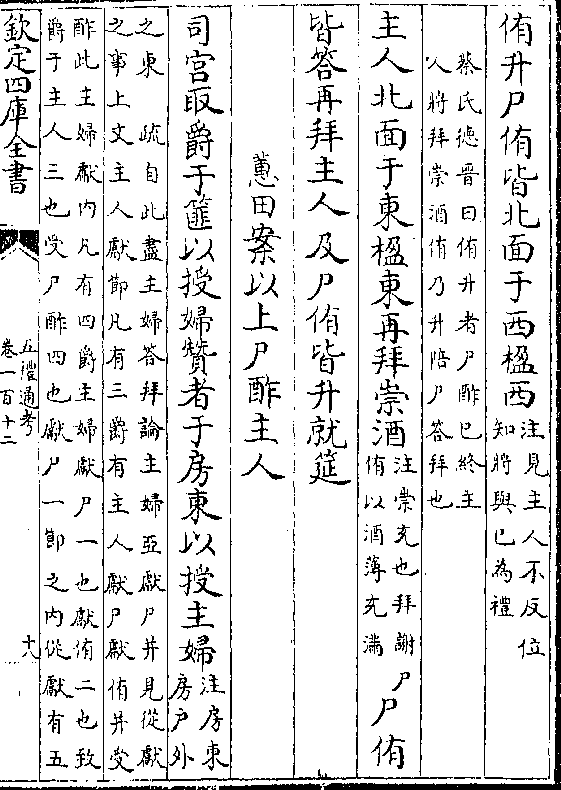 侑升尸侑皆北面于西楹西注見主人不反位
知將與已為禮
蔡氏德晋曰侑升者尸酢已終主
人將拜崇酒侑乃升陪尸答拜也
主人北面于東楹東再拜崇酒注崇充也拜謝尸
侑以酒薄充滿尸侑
皆答再拜主人及尸侑皆升就筵
蕙田案以上尸酢主人
司宫取爵于篚以授婦贊者于房東以授主婦注房東
房户外
之東疏自此盡主婦答拜論主婦亞獻尸并見從獻
之事上文主人獻節凡有三爵有主人獻尸獻侑并受
酢此主婦獻内凡有四爵主婦獻尸一也獻侑二也致
爵于主人三也受尸酢四也獻尸一節之内從獻有五
欽定四庫全書
五禮通考
卷一百十二
十九